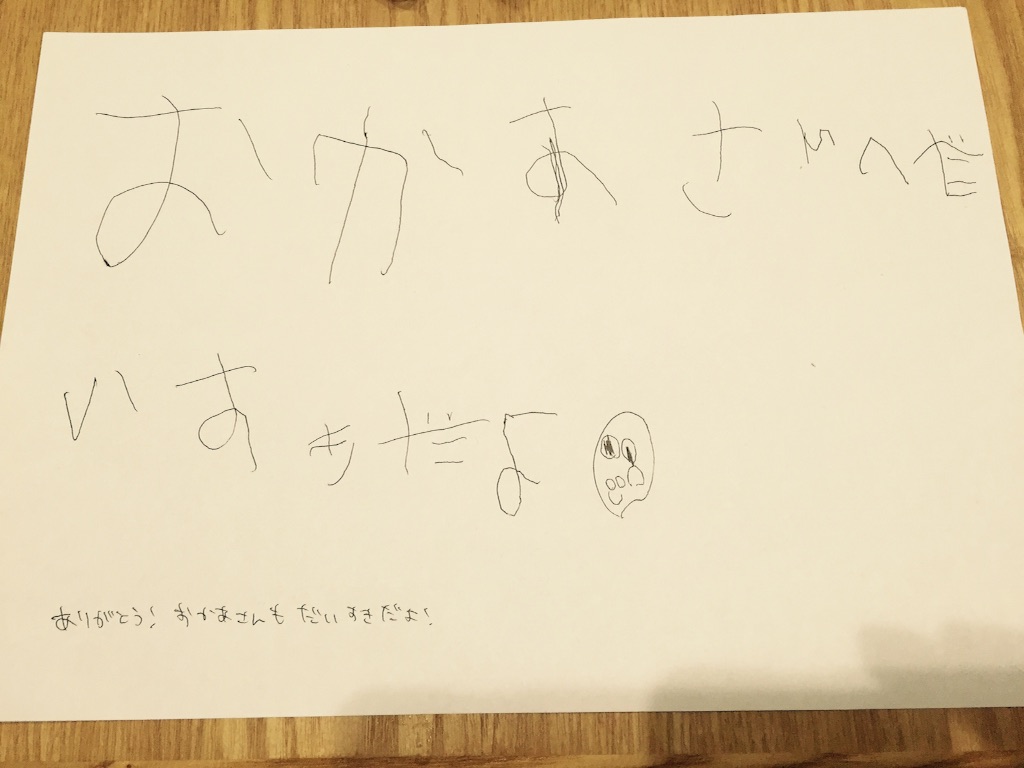 おかあさんへだ
いすきだよ
ありがとう! おかあさんも だいすきだよ!